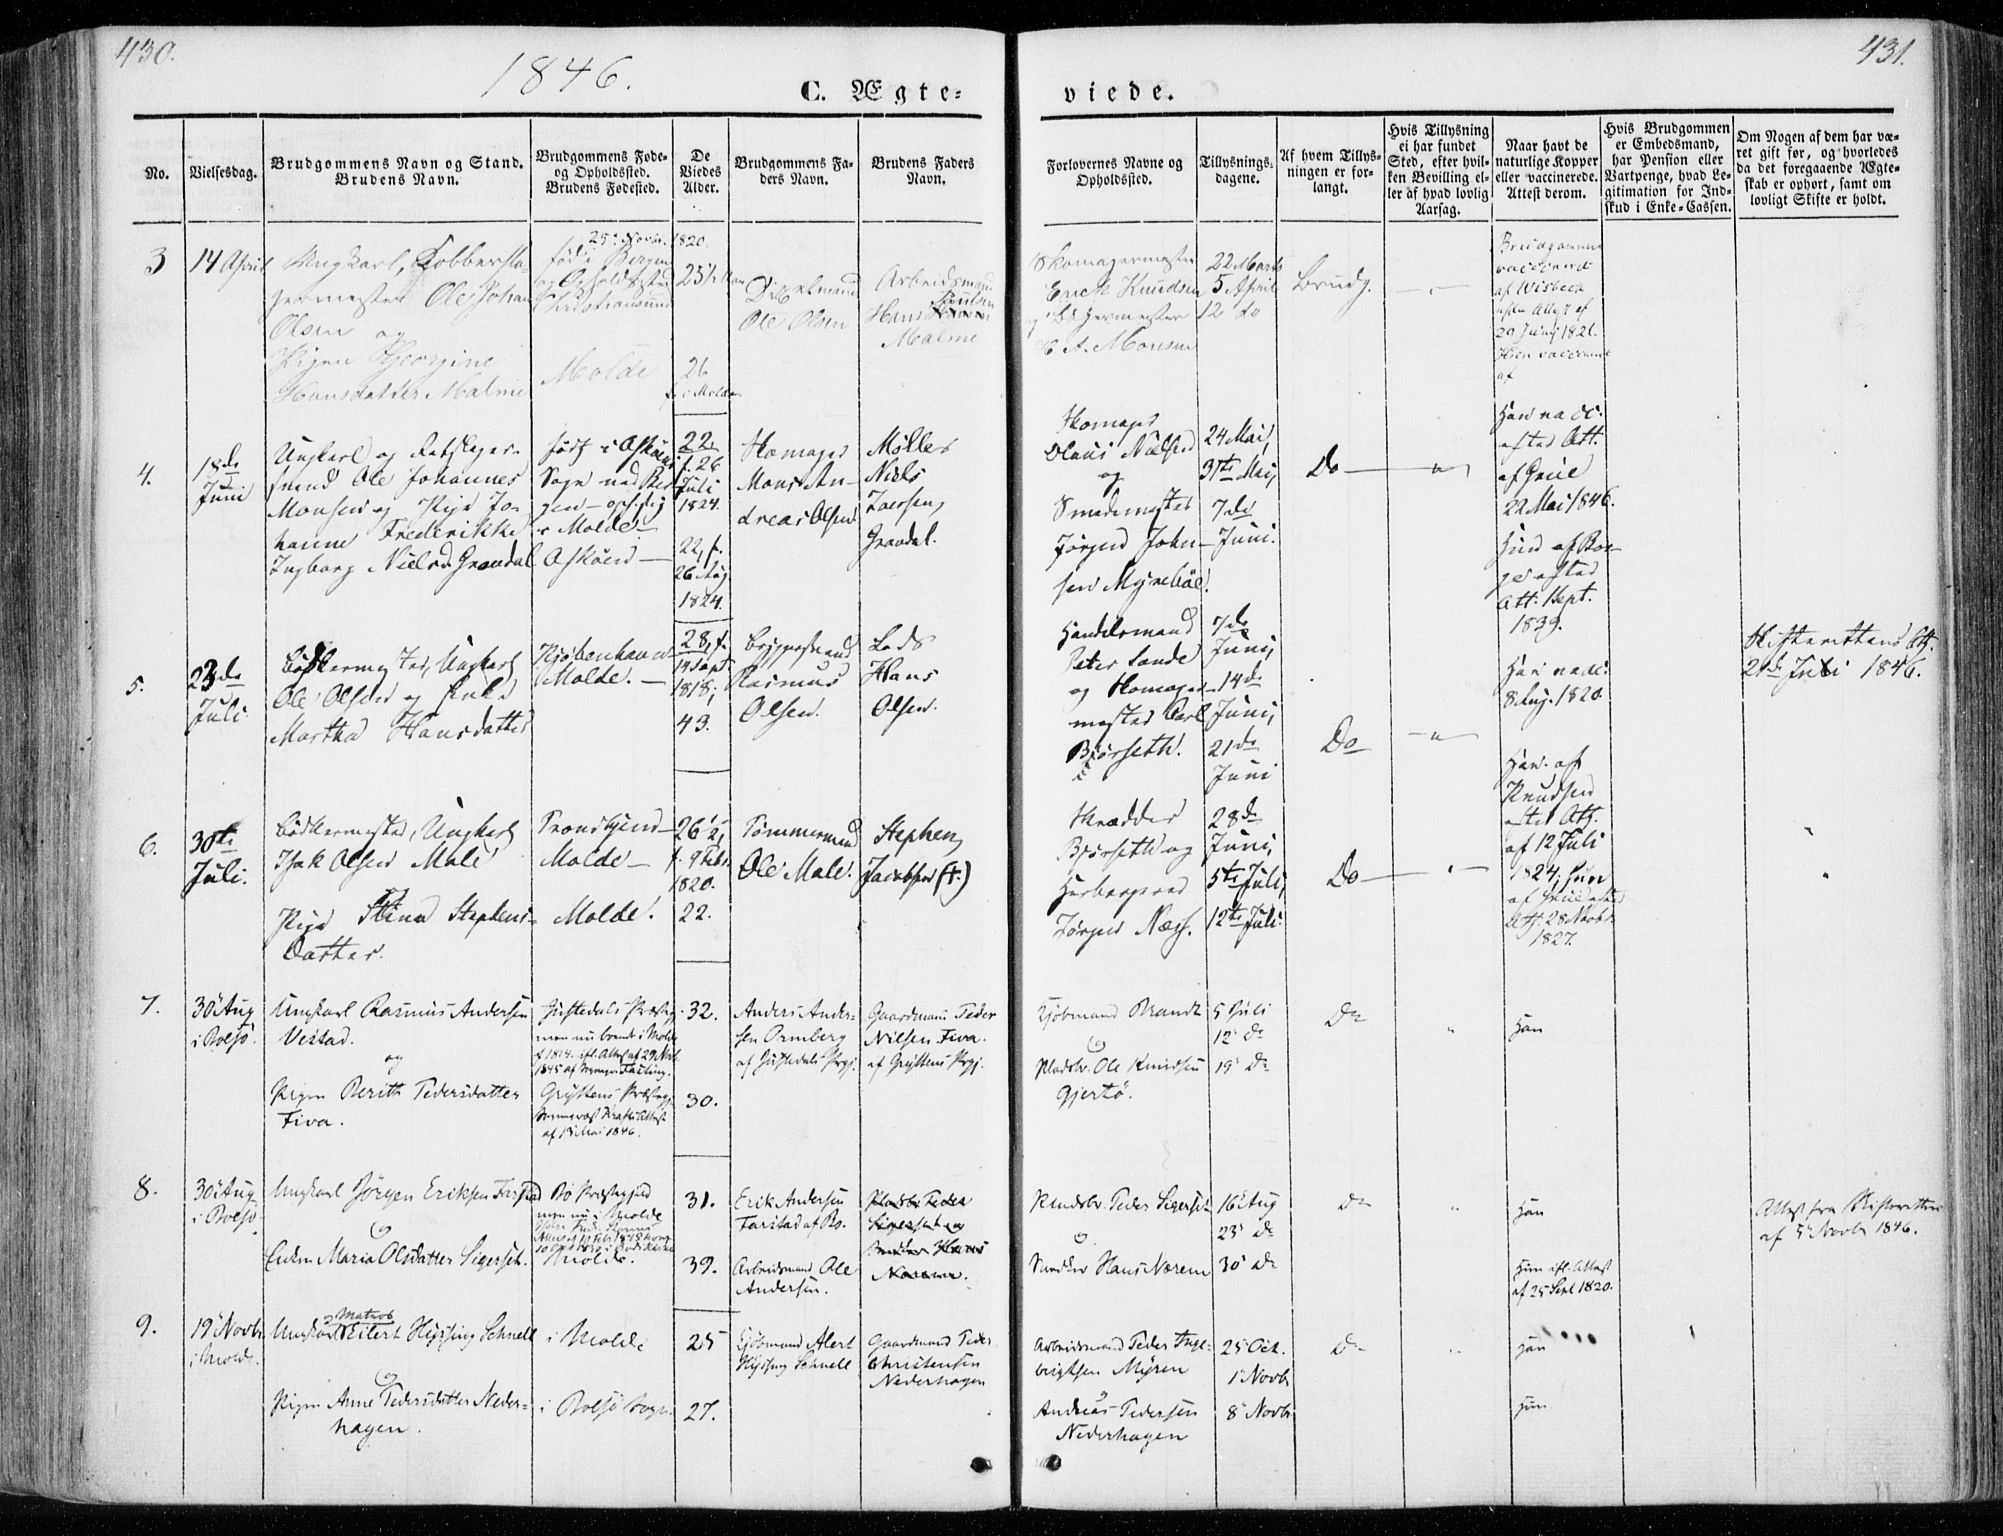 430.
1846.
431.
C. Ægte-
viede.
No.
Vielsesdag.
Brudgommens Navn og Stand.
Brudens Navn.
Brudgommens Føde-
og Opholdssted.
Brudens Fødested.
De
Viedes
Alder.
Brudgommens Fa-
ders Navn.
Brudens Faders
Navn.
Forlovernes Navne og
Opholdssted.
Tillysnings-
dagene.
Af hvem Tillys-
ningen er for-
langt.
Hvis Tillysning
ei har fundet
Sted, efter hvil-
ken Bevilling el-
ler af hvad lovlig
Aarsag.
Naar havt de
naturlige Kopper
eller vaccinerede.
Attest derom.
Hvis Brudgommen
er Embedsmand,
har Pension eller
Vartpenge, hvad Le-
gitimation for Ind-
skud i Enke-Cassen.
Om Nogen af dem har væ-
ret gift før, og hvorledes
da det foregaaende Ægte-
skab er ophørt, samt om
lovligt Skifte er holdt.
3
14 April
Ungkarl, Kobbersla-
germester Ole Johan
Olsen og
Pigen Georgine
Hansdatter Malme
25 Novbr. 1820.
fød i Bergen
og Opholdssted
Christiansund
Molde
25½ Aar
26
f. i Molde
Ole Olsen
Arbeidsmand
Hans Poulsen
Malme
Skomagermester
Erich Knudsen
og Bødkermester
A. Monsen
22 Marts
5 April
12 do
Brudg.
Brudgommen
vaccineret
af Wisbech
efter Attest af
29 Juni 1821.
Hun vaccineret
af
4.
18de
Juni
Ungkarl og Rebslager-
svend Ole Johannes
Monsen og Pige Jo-
hanne Frederikke
Ingborg Nielsd. Grøndal
født i Askøens
Sogn ved Ber-
gen - opholdig
i Molde -
Askøen -
22
f. 26
Juli
1824.
22, f.
26 Aug
1824.
Skomager
Mons An-
dreas Olsen
Møller
Niels
Iversen
Grøndal.
Skomager
Olaus Nielsen
og
Smedemester
Jørgen John-
sen Myrebøe.
24 Mai,
31te Mai,
7de
Juni.
Do
Han vacc.
efter Att.
af Grüe
22 Mai 1846.
Hun af Bor-
gen efter
Att. Sept.
1839.
5.
23de
Juli.
Bødkermester, Ungkarl
Ole Olsen og Enke
Martha Hansdatter
Kjøbenhavn -
Molde. -
28, f.
19 Sept.
1818;
43.
Rasmus
Olsen.
Lods
Hans
Olsen.
Handelsmand
Peter Sande
og Skomager-
mester Carl
Bjørseth.
7de
Juni,
14de
Juni,
21de
Juni
Do
Han vacc.
8 Aug. 1820
Skifterettens Att.
21de Juli 1846.
6.
30te
Juli.
Bødkermester, Ungkarl
Isak Olsen Male
Pige Stina Stephens-
Datter.
Trondhjem -
Molde -
Molde.
26½,
f. 9 Febr.
1820.
22.
Tømmermand
Ole Male.
Stephen
Jacobsen (†.)
Skrædder
Bjørseth og
Jørgen Næss.
28de
Juni,
5te Juli,
12te Juli.
Do
Han af
Knudsen
efter Att.
af 12 Juli
1824; Hun
af Grüe efter
Att. 28 Novbr
1827.
7.
30 Aug
i Bolsø.
Ungkarl Rasmus Andersen
Vestad.
og
Pigen Berith Pedersdatter
Fiva.
Justedals Præstegj.
men nu boende i Molde
Gryttens Præstegj.
af 1 Mai 1846.
32.
30.
Anders Ander-
sen Ormberg
af Justedals Prgj.
Gaardmand Peder
Nilsen Fiva.
af Gryttens Prgj.
Kjøbmand Brandt
&
Pladsbr. Ole Knudsen
Gjertø.
5 Juli
12 Do
19 Do
Do
Han
8.
30 Aug
i Bolsø
Ungkarl Jørgen Eriksen Farstad
&
Enken Maria Olsdatter Sigerset.
Bø Præstegjeld
men nu i Molde
Molde.
31.
39.
Erik Andersen
Farstad af Bo.
Arbeidsmand Ole
Andersen.
Pladsbr Peder
Sigerset og
Smeden Hans
Nærem.
Pladsbr. Peder Sigerset
&
Smeden Hans Nærem
16 Aug
23 Do
30 Do
Do
Han
Hun ifl. Attest
af 25 Sept 1820.
Attest fra Skifteretten
af 5 Novbr 1846.
9.
19 Novbr
i Molde.
Matros
Ungkarl Eilert Hysing Schnell
&
Pigen Anne Pedersdatter Neder-
hagen.
i Molde
i Bolsø Sogn.
25
27.
Kjøbmand Alert
Hysing Schnell
Gaardmand Peder
Christensen
Nederhagen
Arbeidsmand Peder Inge-
brigtsen Myren
&
Andreas Pedersen
Nederhagen
25 Oct.
1 Novbr
8 Novbr
Do
Han
Hun